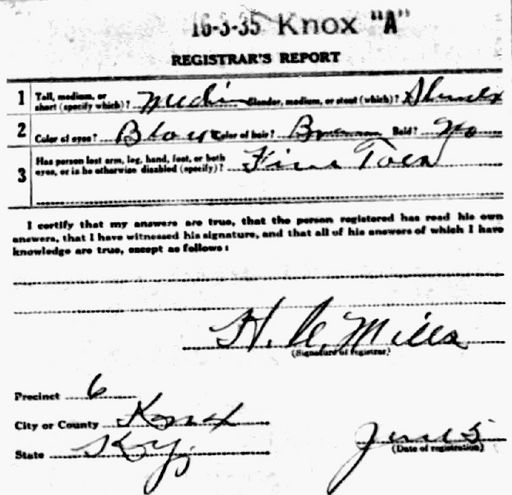 16-3-35 Knox "A"
REGISTRAR'S REPORT
1 Tall, medium, or short (specify which)? Medi Slender, medium, or stout (which)? Slender
2 Color of eyes? Color of hair? Brown Bald? No
3 Has person lost arm, leg, hand, foot, or both
eyes, or is he otherwise disabled (specify)?
I certify that my answers are true, that the person registered has read his own
answers, that I have witnessed his signature, and that all of his answers of which I have
knowledge are true, except as follows:
H. A. Mills
(Signature of registrar)
Precinct 6
City or County Knox
State Ky.
June 5
(Date of registration)